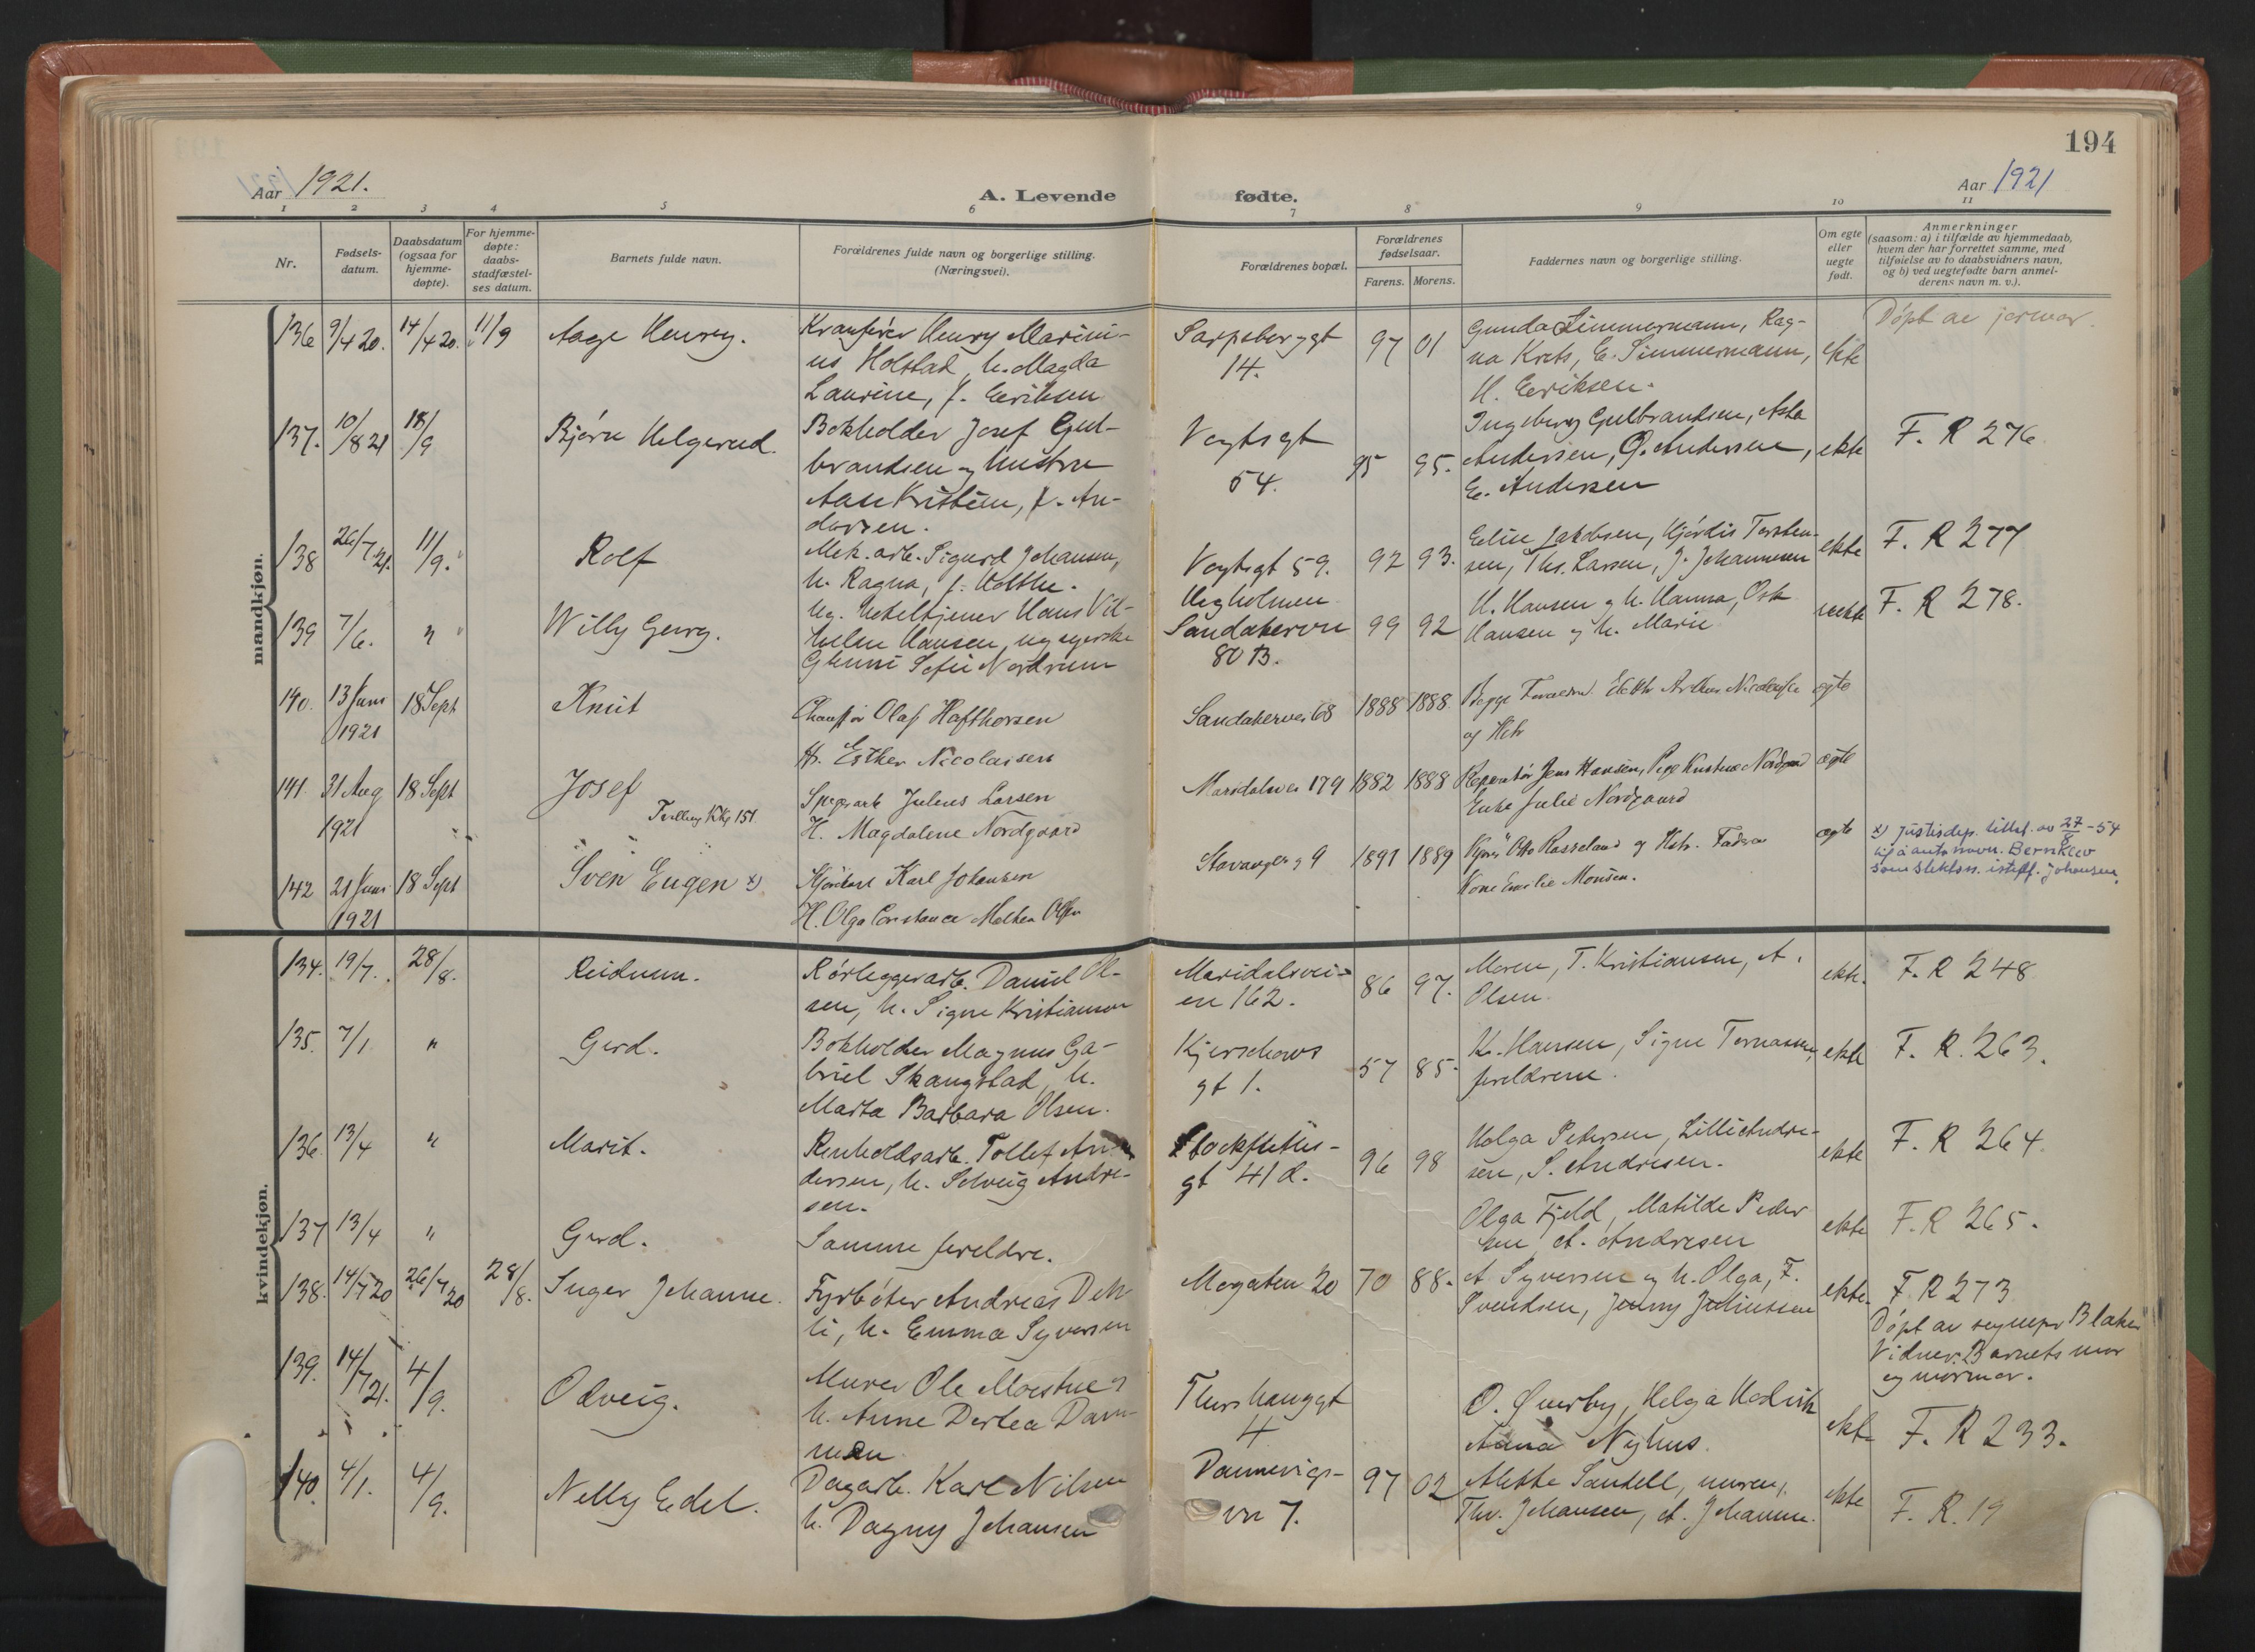 194
Aar 1921.
A. Levende fødte.
Aar 1921
1 2 3 4 5 6 7 8 9 10 11
Nr.
Fødsels-
datum.
Daabsdatum
(ogsaa for
hjemme-
døpte).
For hjemme-
døpte:
daabs-
stadfæstel-
ses datum.
Barnets fulde navn.
Forældrenes fulde navn og borgerlige stilling.
(Næringsvei).
Forældrenes bopæl.
Forældrenes
fødselsaar.
Farens. Morens.
Faddernes navn og borgerlige stilling.
Om egte
eller
uegte
født.
Anmerkninger
(saasom: a) i tilfælde av hjemmedaab,
hvem der har forrettet samme, med
tilføielse av to daabsvidners navn,
og b) ved uegtefødte barn anmel-
derens navn m. v.).
mandkjøn.
136 9/4 20. 14/4 20. 11/9 Aage Henry.
Kranfører Henry Marini-
us Holstad, h. Magda
Laurine, f. Eeriksen
Sarpsborggt
14.
97 01
Gunda Simmermann, Rag-
na Krets, E. Simmermann,
H. Eeriksen.
ekte
Døpt av jormor.
137. 10/8 21 18/9 Bjørn Helgerud.
Bokholder Josef Gul-
brandsen og hustru
Aase Kristine, f. An-
dersen.
Vogtsgt
54.
95 95.
Ingeborg Gulbrandsen, Asta
Andersen, O. Andersen,
E. Andersen
ekte
F. R 276
138 26/7 21. 11/9. Rolf
Mek. arb. Sigurd Johansen,
h. Ragna, f. Holthe.
Vogtsgt 59.
92 93.
Eeline Jakobsen, Hjørdis Torsten-
sen, Ths. Larsen, J. Johannesen
ekte
F. R 277
139 7/6. " Willy Georg.
Ug. hoteltjener Hans Vil-
helm Hansen, ug syerske
Gunni Sofie Nordrum
Hegholmen
Sandakervn
80 B.
99 92
H. Hansen og h. Hanna, Osk
Hansen og h. Marie
uekte
F. R 278.
140. 13 Juni
1921
18 Sept Knut
Chauffør Olaf Hafthorsen
H. Esther Nicolaisen
Sandakervei 68 1888 1888
Begge Forældre. Arthur Nicolaisen
og Hstr
egte
141 31 Aug
1921
18 Sept Josef
Tvilling Kkj 151.
Spigerarb Julius Larsen
H. Magdalene Nordgaard
Maridalsvei 179 1882 1888
Reparatør Jens Hansen, Pige Kristine Nordgaard
Enke Julie Nordgaard
ægte
142 21 Juni
1921
18 Sept Sven Eugen x)
Kjørekarl Karl Johansen
H. Olga Constance Mathea Olsen
Stavangerg 9 1891 1889
Otto Rasseland og Hstr. Faderen
Kone Emilie Monsen.
ægte
x) Justisdep. tillat. av 27/8-54
til å anta navn. Bernklev
som slektsn. istedf. Johansen.
kvindekjøn.
134. 19/7. 28/8. Reidunn.
Rørleggerarb. Daniel Ol-
sen, h. Signe Kristiansen
Maridalsvei-
en 162.
86 97.
Moren, T. Kristiansen, A.
Olsen.
ekte.
F. R 248
135. 7/1. " Gerd.
Bokholder Magnus Ga-
briel Skangstad, h.
Marta Barbara Olsen.
Kjerschows
gt 1.
57 85.
K. Hansen, Signe Tornassen,
foreldrene.
ekte
F. R. 263.
136. 13/4 " Marit.
Renholdsarb. Tollef An-
dersen, h. Solveig Andre-
sen.
Stockfleths-
gt 41 d.
96 98
Helga Petersen, Lilli Andre-
sen, S. Andresen.
ekte
F. R 264.
137 13/4 " Gerd.
Samme foreldre.
Olga Fjeld, Matilde Peder
sen A. Andresen
ekte
F. R 265.
138. 14/7 20 26/7 20 28/8. Inger Johanne.
Fyrbøter Andreas Deh
li, h. Emma Syversen
Mogaten 20 70 88.
A. Syversen og h. Olga, F.
Svendsen, Jenny Juliussen
ekte.
F. R 273
Døpt av sognepr Blake
Vidner: Barnets mor
og mormor.
139. 14/7 21. 4/9. Odveig.
Murer Ole Moestue og
h. Anne Dortea Dam-
men
Thorshauggt
4
O. Øverby, Helga Hedvik
Anna Nyhus.
ekte
F. R 233.
140. 4/1. 4/9. Nelly Edel.
Dagarb. Karl Nilsen
h. Dagny Johansen
Dannevigs-
vn 7.
97 02
Alette Sandell, moren,
Thv. Johansen, A. Johansen.
ekte
F. R. 19